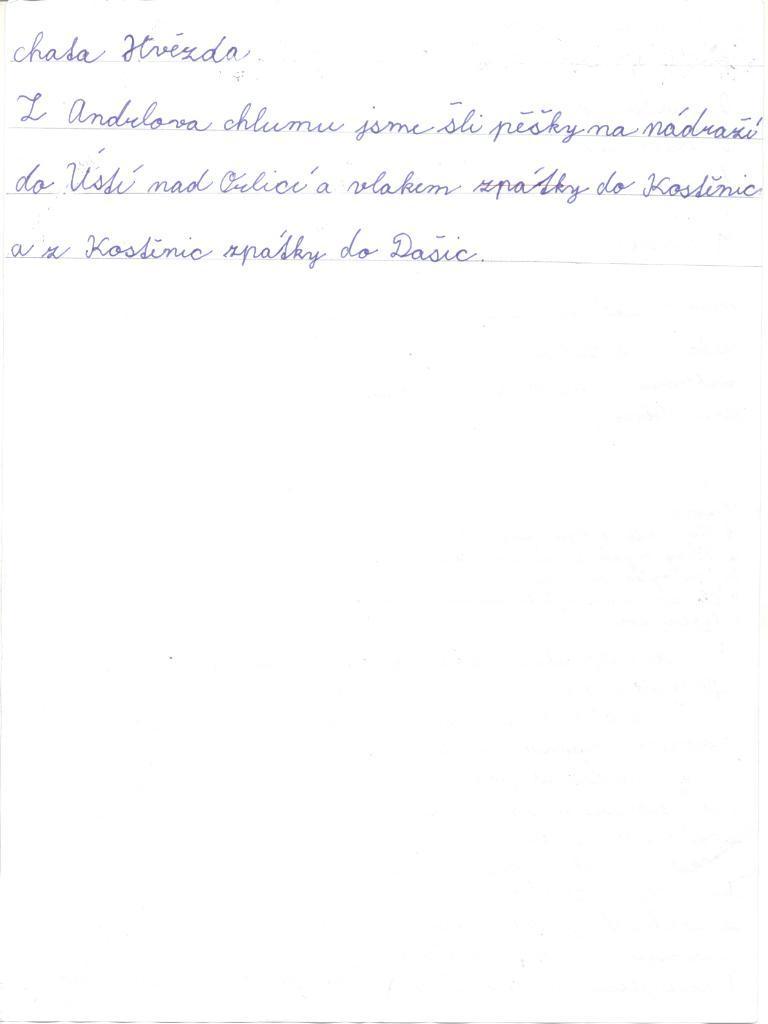 chata Hvězda.
Z Andrlova chlumu jsme šli pěšky na nádraží
do Ústí nad Orlicí a vlakem zpátky do Kostěnic
a z Kostěnic zpátky do Dašic.